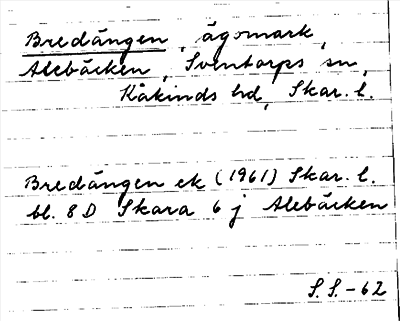 Bredängen, ägomark,
Alebäcken, Sventorps sn,
Kåkinds hd, Skar. l.
Bredängen ek (1961) Skar. l.
bl. 8 D Skara 6 j Alebäcken
S.S.-62